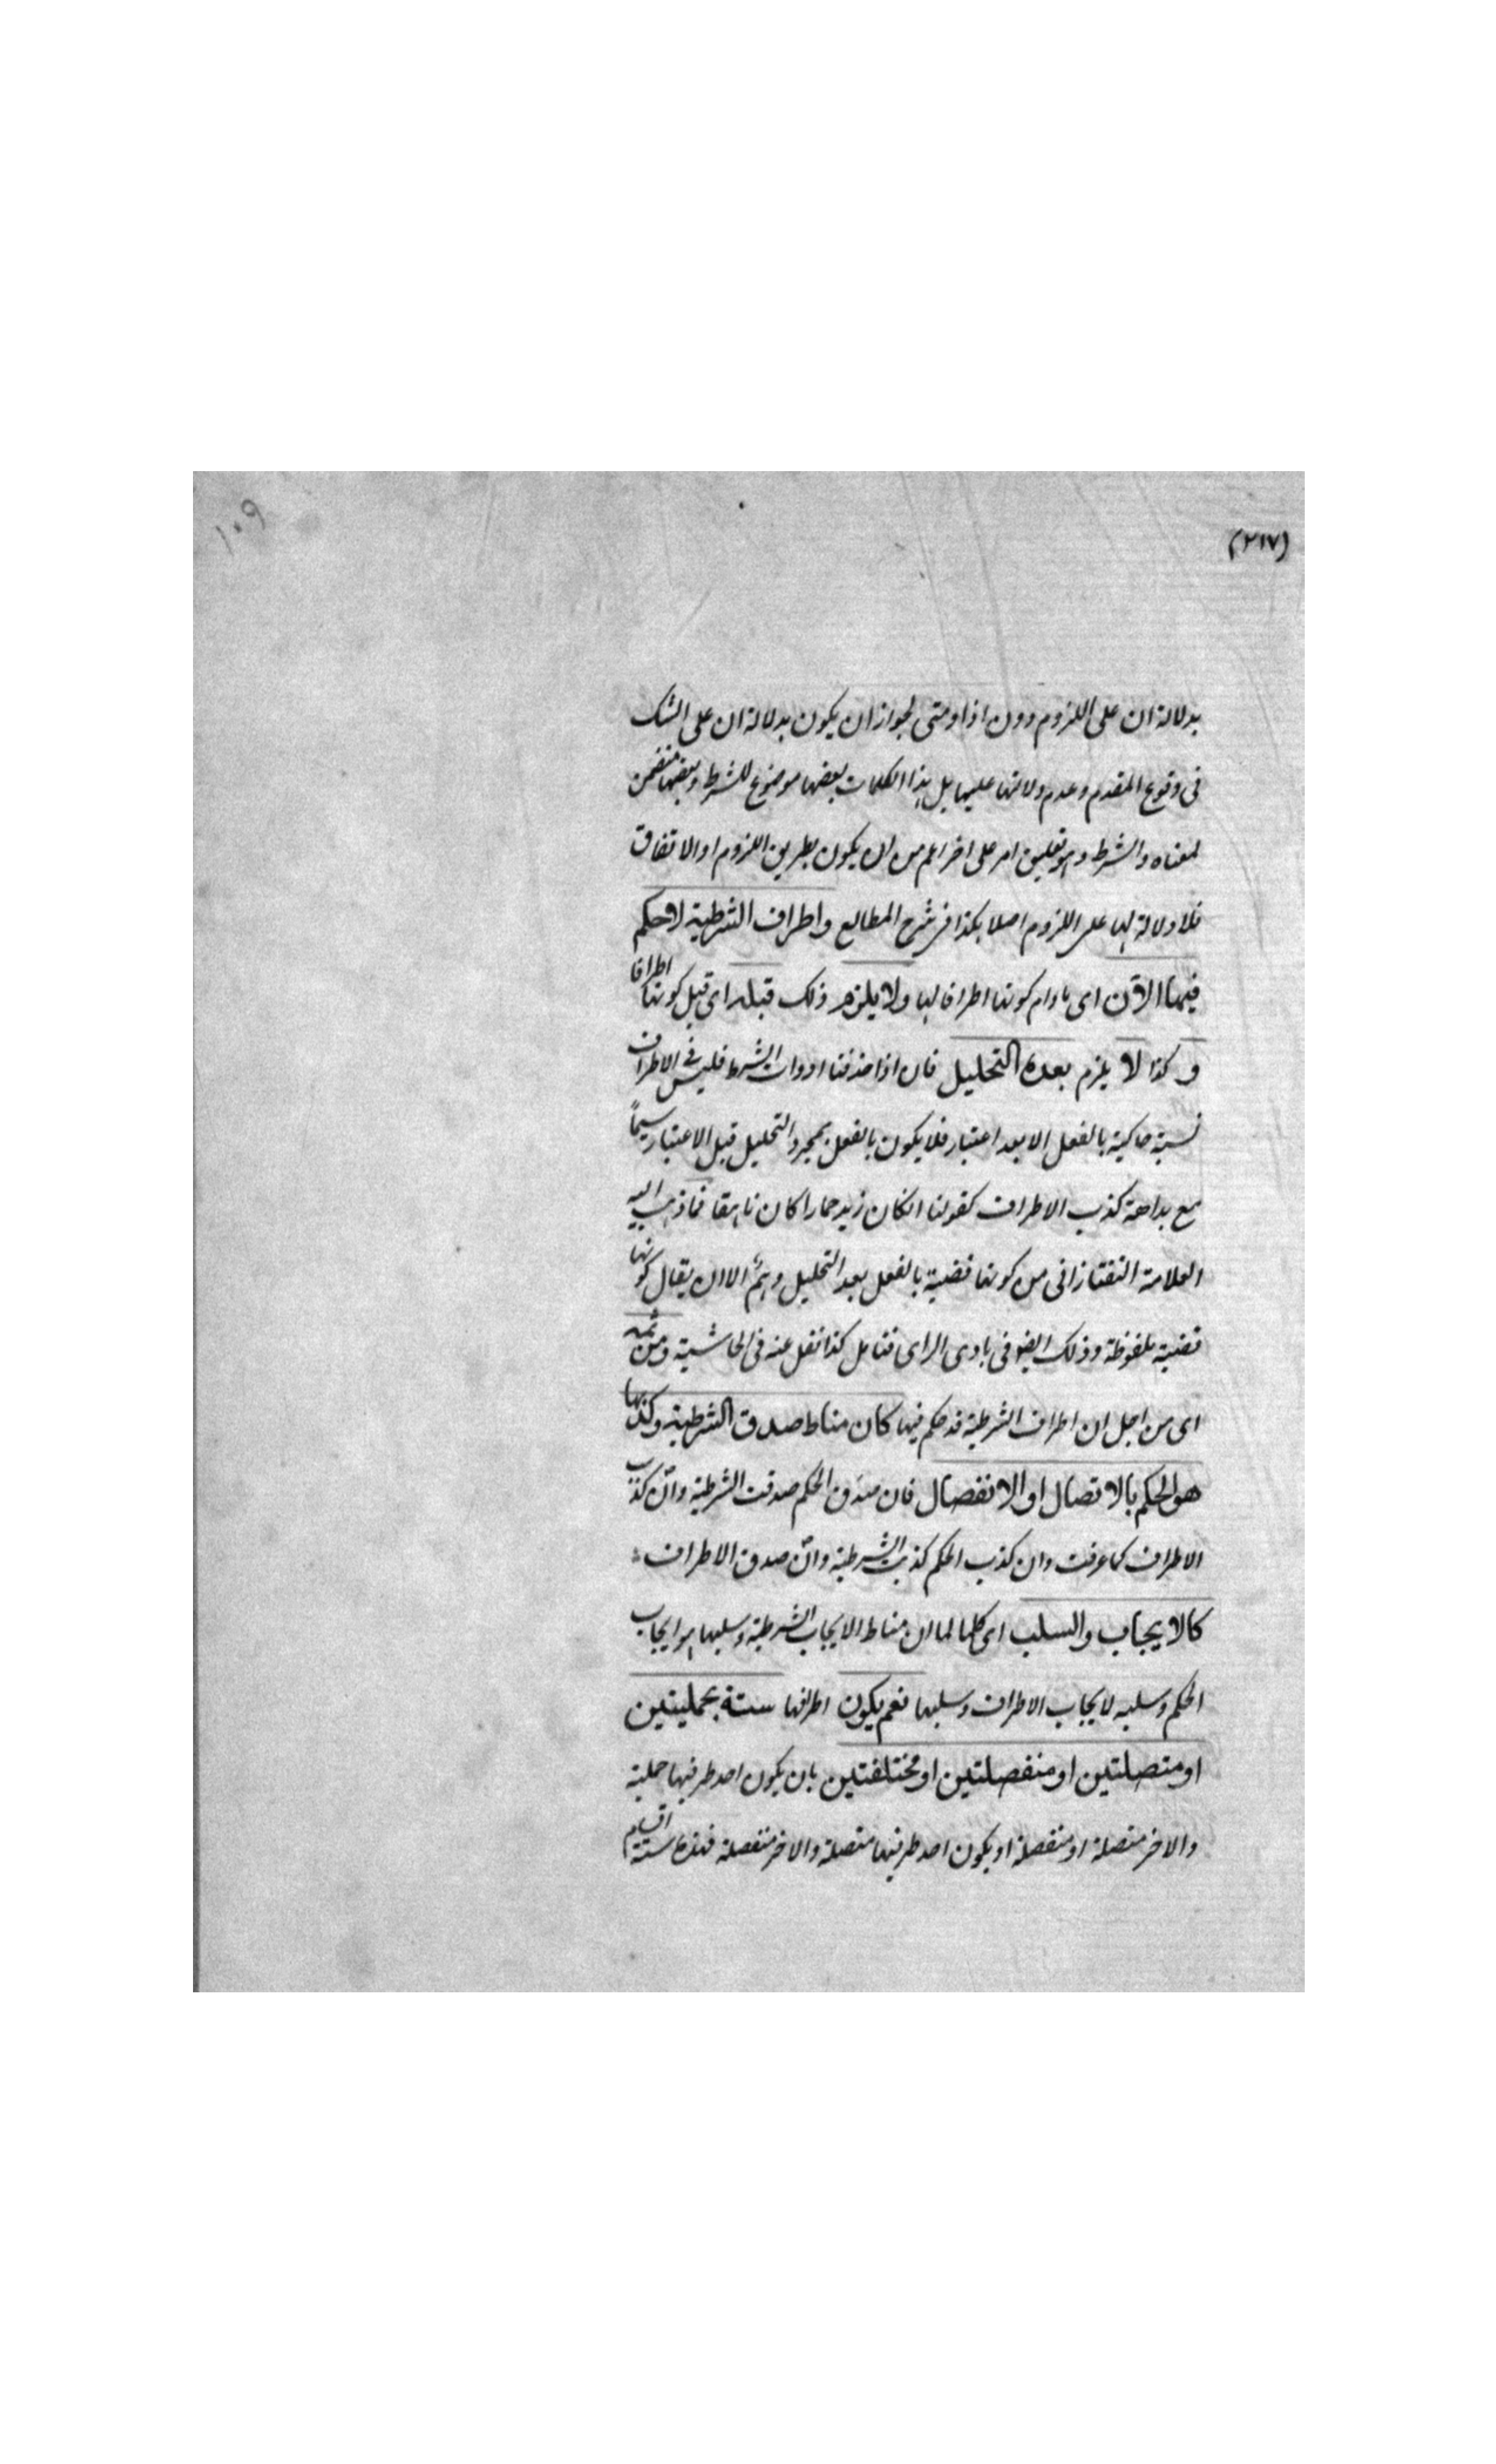 ١٠٩
(٢١٧)
بدلالة ان على اللزوم دون اذا ومتى لجواز ان يكون بدلالة ان على الشك
فى وقوع المقدم وعدم دلالتها عليها بل هذا الكلمات بعضها موضوع للشرط وبعضها متضمن
لمعناه والشرط وهو تعليق امر على اخر اعم من ان يكون بطريق اللزوم او الاتفاق
فلا دلالة لها على اللزوم اصلا هكذا فى شرح المطالع واطراف الشرطية لا حكم
فيها الآن اى مادام كونها اطرافا لها ولا يلزم ذلك قبله اى قبل كونها اطرافا
وكذا لا يلزم بعده التحليل فان اذا حذفنا ادوات الشرط فليس فى الاطراف
نسبة حاكية بالفعل الا بعد اعتبار فلا يكون بالفعل بمجرد التحليل قبل الاعتبار سيماً
مع بداهة كذب الاطراف كقولنا انكان زيد حمارا كان ناهقا فما ذهب اليه
العلامة التفتازانى من كونها قضية بالفعل بعد التحليل وهمٌ الا ان يقال كونها
قضية ملفوظة وذلك ايضو فى بادى الراى فتامل كذا نقل عنه فى الحاشية ومن ثمه
اى من اجل ان اطراف الشرطية قد حكم فيها كان مناط صدق الشرطية وكذبها
هو الحكم بالاتصال او الانفصال فان صدق الحكم صدقت الشرطية وان كذب
الاطراف كما عرفت وان كذب الحكم كذبت الشرطية وان صدق الاطراف
كالايجاب والسلب اى كلها لما ان مناط الايجاب الشرطية وسلبها هو ايجاب
الحكم وسلبه لا يجاب الاطراف وسلبها نعم يكون اطرافها ستة بحمليتين
او متصلتين او منفصلتين او مختلفتين بان يكون احد طرفيها حملية
والاخر متصلة او منفصلة او يكون احد طرفيها متصلة والاخر منفصلة فهذه ستة اقسام